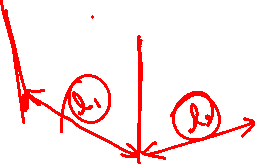 l₁
l₂